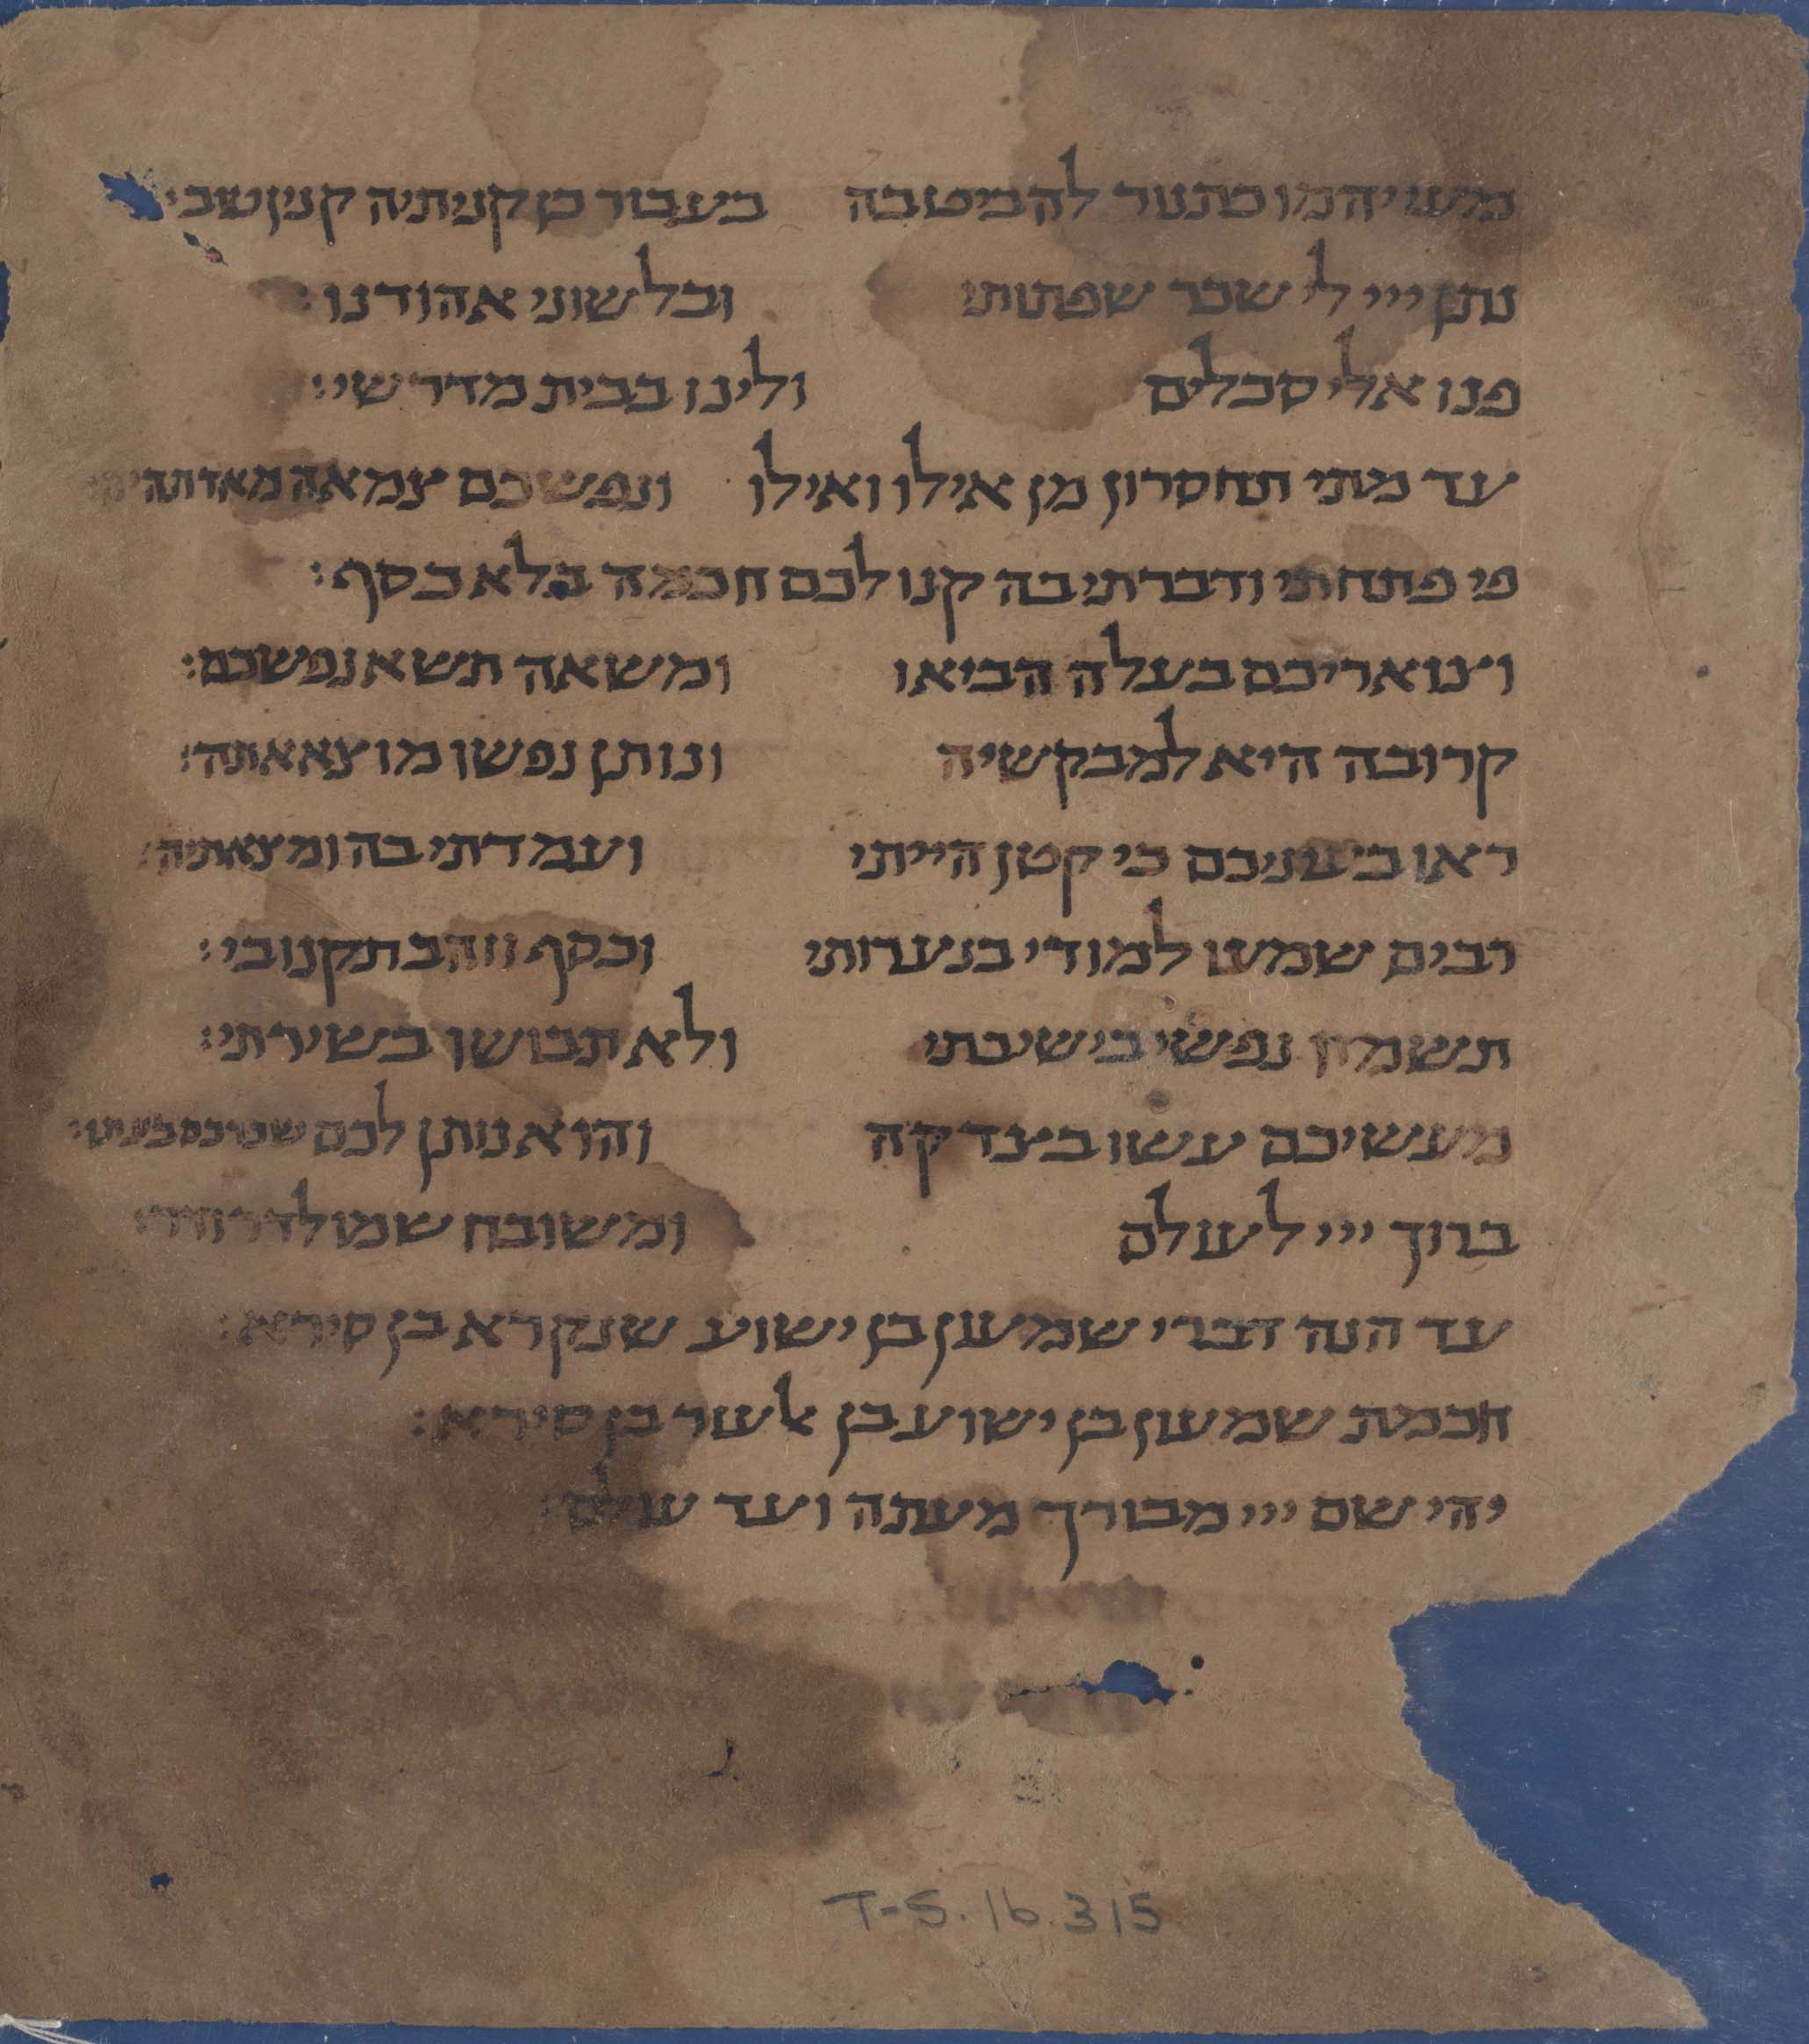 מעי יהמו כתנור להביט בה בעבור כן קניתיה קנין טוב:
נתן ייי לי שכר שפתותי ובלשוני אהודנו:
פנו אלי סכלים ולינו בבית מדרשי:
עד מתי תחסרון מן אילו ואילו ונפשכם צמאה מאד תהיה:
פי פתחתי ודברתי בה קנו לכם חכמה בלא כסף:
וצואריכם בעלה הביאו ומשאה תשא נפשכם:
קרובה היא למבקשיה ונותן נפשו מוצא אתה:
ראו בעיניכם כי קטן הייתי ועמדתי בה ומצאתיה:
רבים שמעו למודי בנערותי וכסף וזהב תקנו בי:
תשמח נפשי בישיבתי ולא תבושו בשירתי:
מעשיכם עשו בצדקה והוא נותן לכם שכרכם בעתו:
ברוך ייי לעולם ומשובח שמו לדר ודר:
עד הנה דברי שמעון בן ישוע שנקרא בן סירא:
חכמת שמעון בן ישוע בן אלעזר בן סירא:
יהי שם ייי מבורך מעתה ועד עולם:
T-S. 16.315